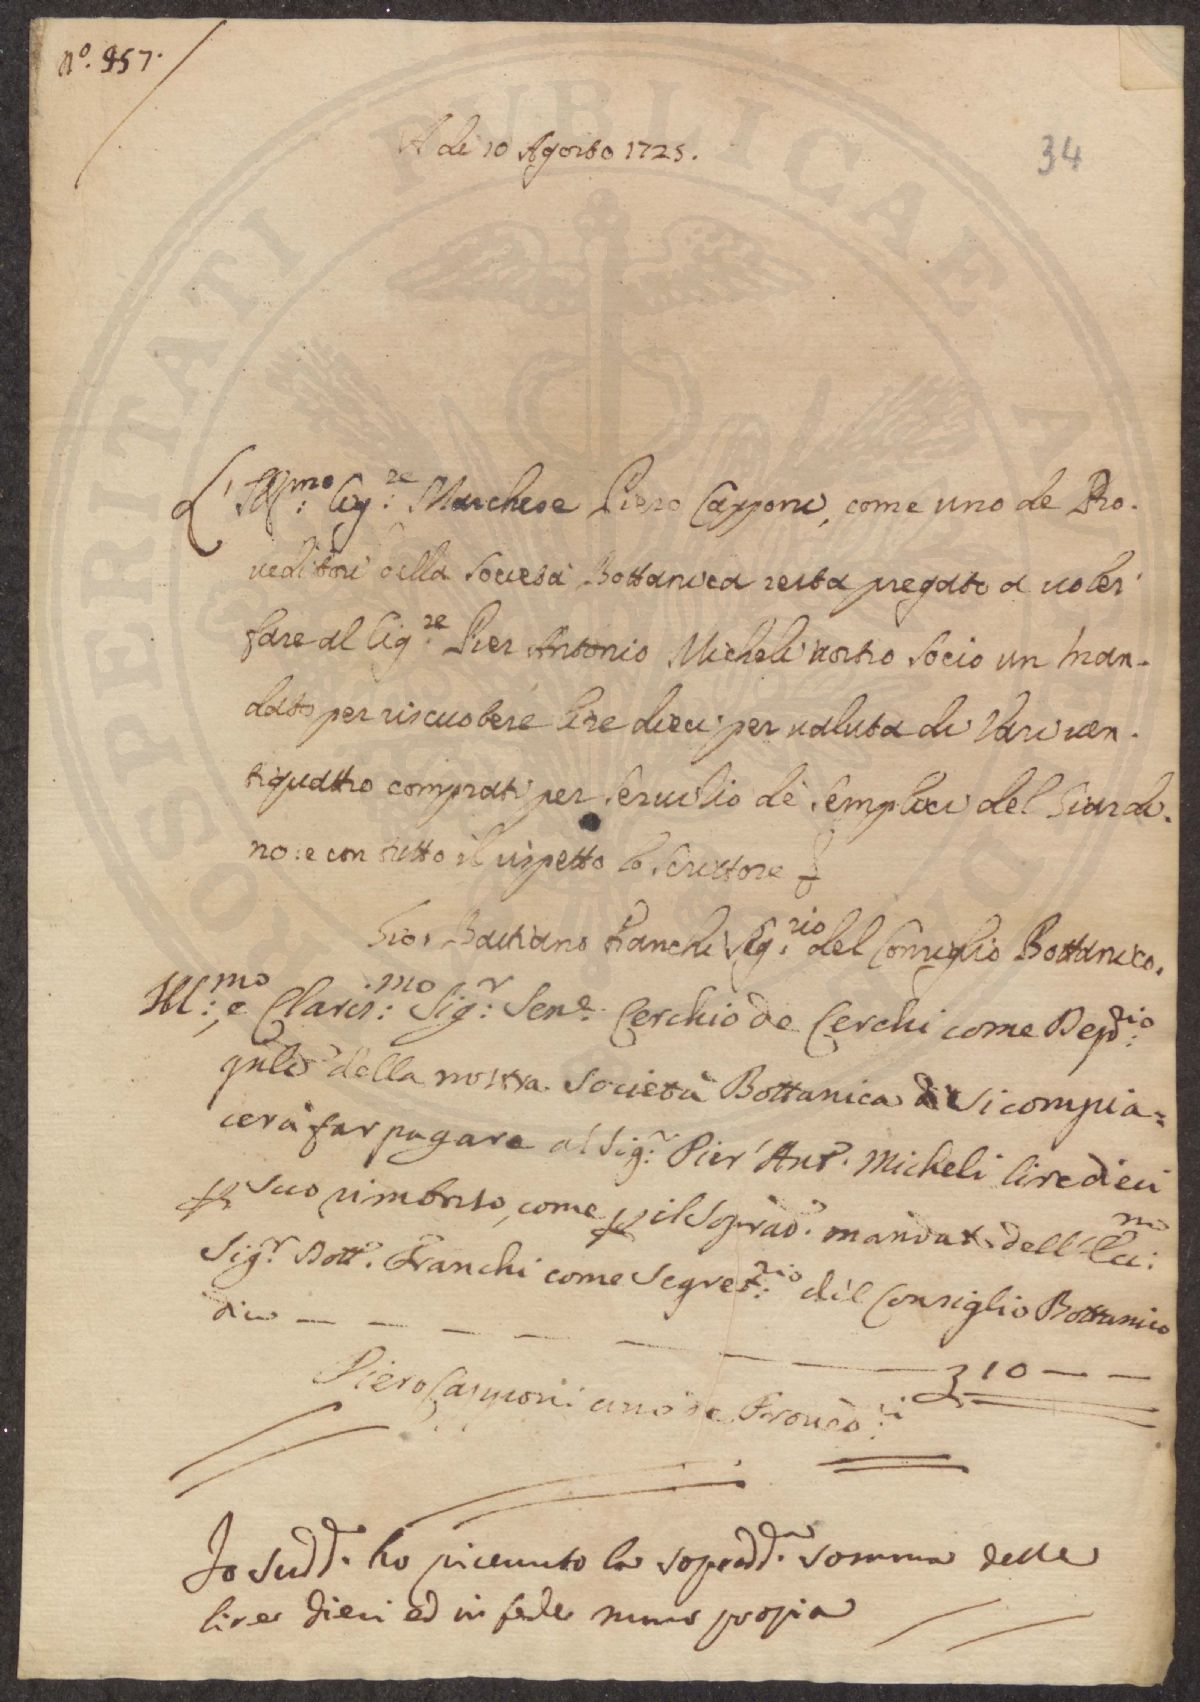 nº. 957.
34
A dì 10 Agosto 1725.
L'Ill.mo Sig.re Marchese Piero Capponi, come uno de Pro-
veditori della Società Bottanica resta pregato a voler
fare al Sig.re Pier Antonio Micheli nostro Socio un Man-
dato per riscuotere lire dieci per valuta di Vasi ven-
tiquattro comprati per servizio de Semplici del Giardi-
no: e con tutto il rispetto lo scrittore
Gio. Bastiano Franchi Seg.rio del Consiglio Bottanico.
Ill.mo e Claris.mo Sig.r Sen.e Cerchio de Cerchi come Dep.rio
della nostra Società Bottanica si compia=
cerà far pagare al Sig.r Pier Ant.o Micheli lire dieci
p suo rimborso, come p il soprad.o mandato dell'Ecc.mo
Sig.r Dott.e Franchi come Segret.rio del Consiglio Bottanico
dico — — — — — — — 10 — —
Piero Capponi uno de Proved.ri
Io sudd.o ho riceuuto la sopradd.a somma delle
lire dieci ed in fede mano propia
PROSPERITATI PUBLICAE AU